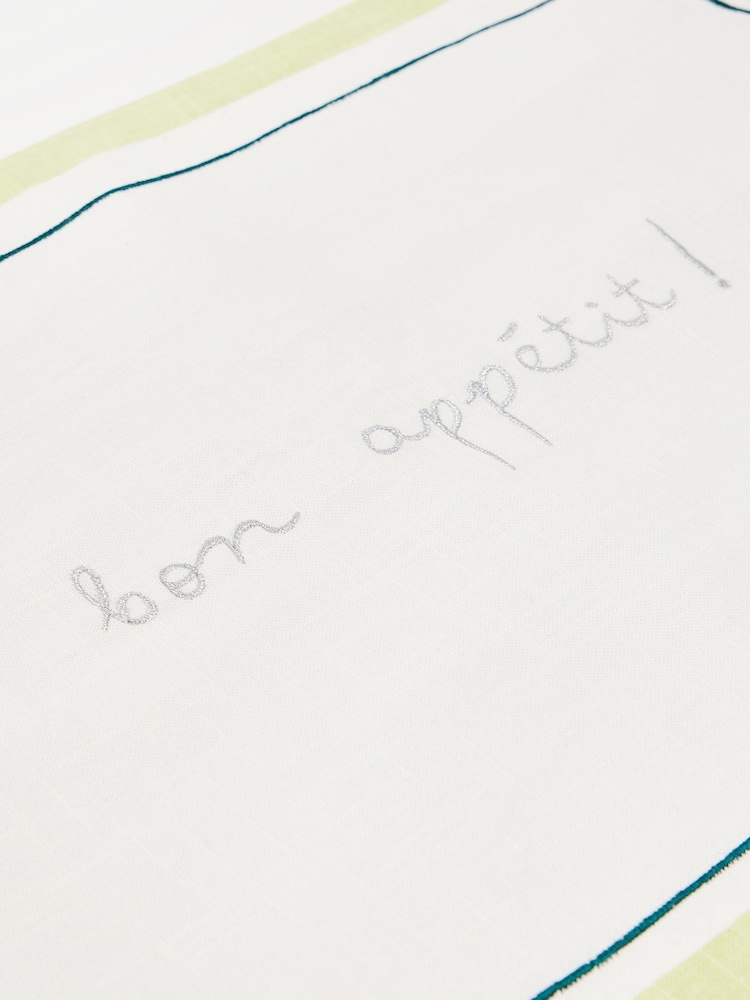 bon appétit !